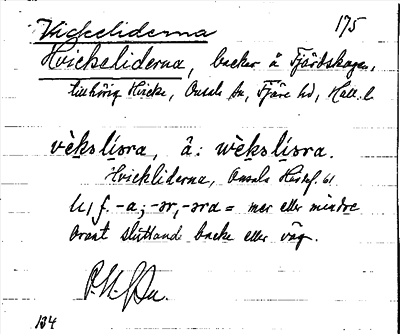 Vickeliderna 175
Hvickeliderna, backar å Fjärdskagen,
tillhörig Hicke, Onsala sn, Fjäre hd, Hall. l.
vèkslíɔra, â: wèkslíɔra.
Hvickliderna, Onsala Herkf. 61
li, f. -a; -ər, -əra = mer eller mindre
brant sluttande backe eller väg.
134